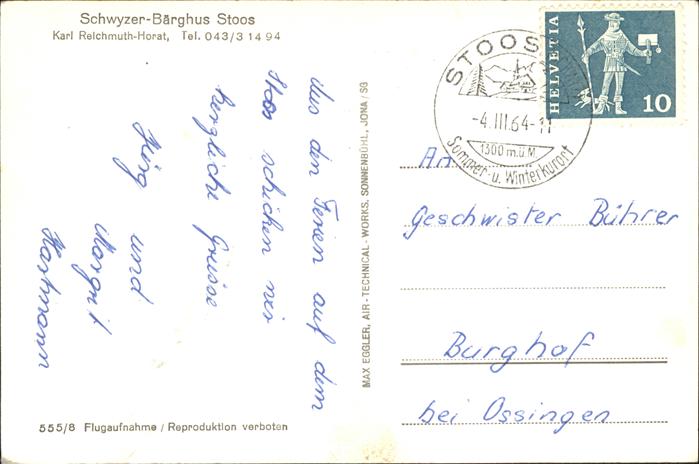 Schwyzer-Bärghus Stoos
Karl Reichmuth-Horat, Tel. 043/3 14 94
Aus den Ferien auf dem
Stoos schicken wir
herzliche Grüsse
Jürg und
Margrit
Hartmann
555/8 Flugaufnahme / Reproduktion verboten
MAX EGGLER, AIR-TECHNICAL-WORKS, SONNENBÜHL, JONA/SG
STOOS
-4.III.64-11
1300 m.ü.M.
Sommer- u. Winterkurort
HELVETIA
10
An
Geschwister Bührer
Burghof
bei Ossingen